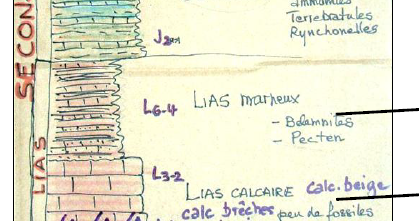 Ammonites
Terrebratules
Rynchonelles
SECON
LIAS
L6-4 LIAS marneux
- Belemnites
- Pecten
L3-2
LIAS CALCAIRE calc. beige
calc brêches peu de fossiles